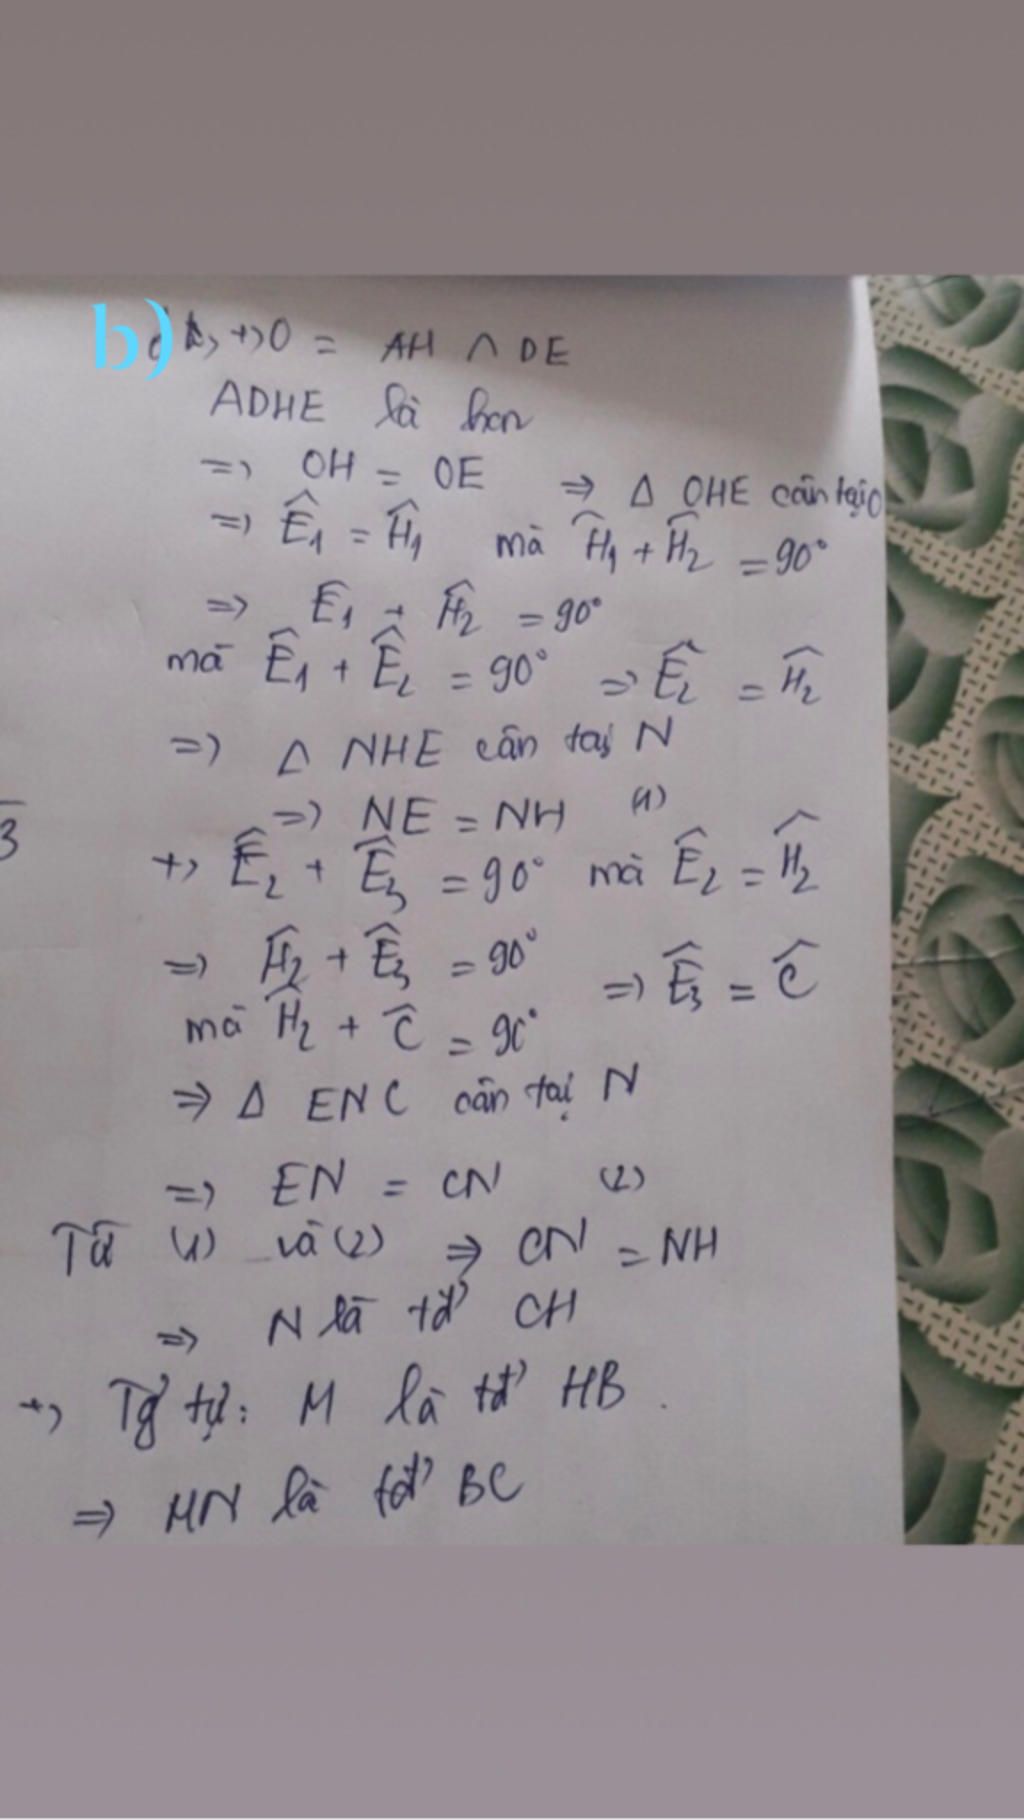 b) +) O = AH ∩ DE
ADHE là hcn
=> OH = OE => Δ OHE cân tại O
=> Ê₁ = Ĥ₁ mà Ĥ₁ + Ĥ₂ = 90°
=> Ê₁ + Ĥ₂ = 90°
mà Ê₁ + Ê₂ = 90° => Ê₂ = Ĥ₂
=> Δ NHE cân tại N
=> NE = NH (1)
3
+) Ê₂ + Ê₃ = 90° mà Ê₂ = Ĥ₂
=> Ĥ₂ + Ê₃ = 90°
mà Ĥ₂ + Ĉ = 90° => Ê₃ = Ĉ
=> Δ ENC cân tại N
=> EN = CN (2)
Từ (1) và (2) => CN = NH
=> N là tđ' CH
+) Tg' tự: M là tđ' HB.
=> MN là tđ' BC